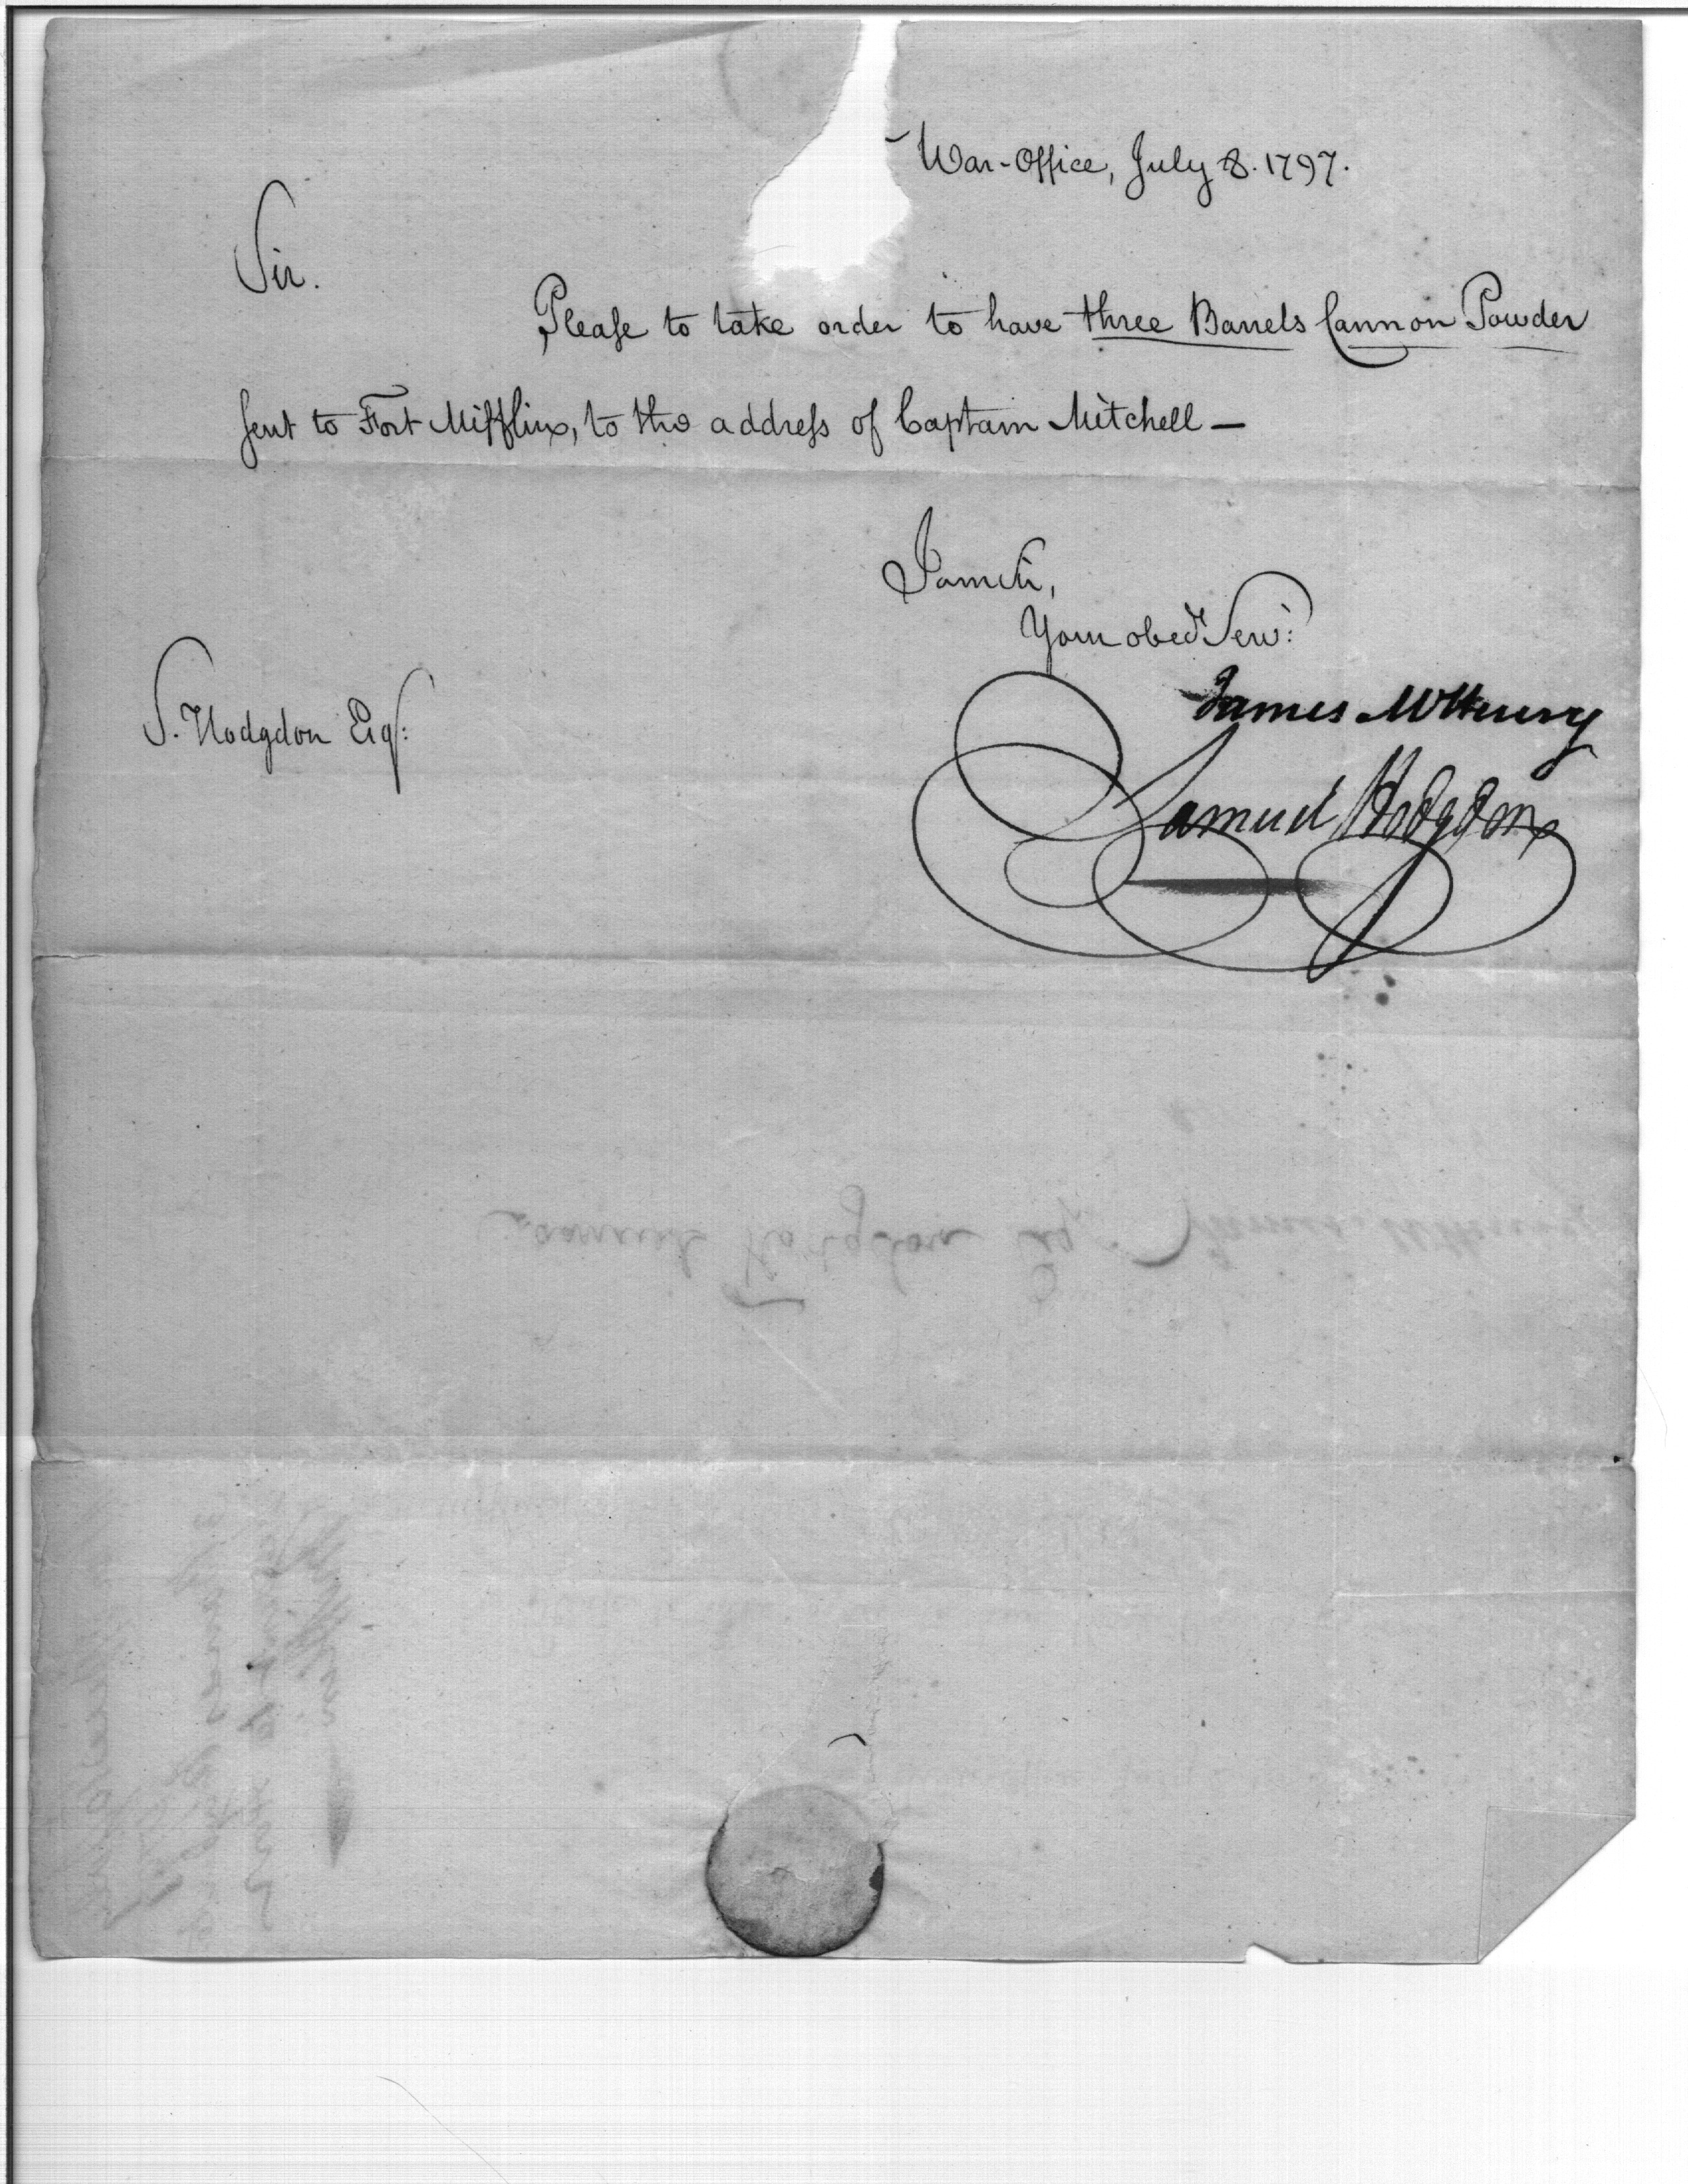 War-Office, July 8. 1797.
Sir.
Please to take order to have three Barrels Cannon Powder
sent to Fort Mifflin, to the address of Captain Mitchell —
I am Sir,
Your obed.t Serv.t
James McHenry
Samuel Hodgdon
S. Hodgdon Esq.r
Samuel Hodgdon Esq. James McHenry